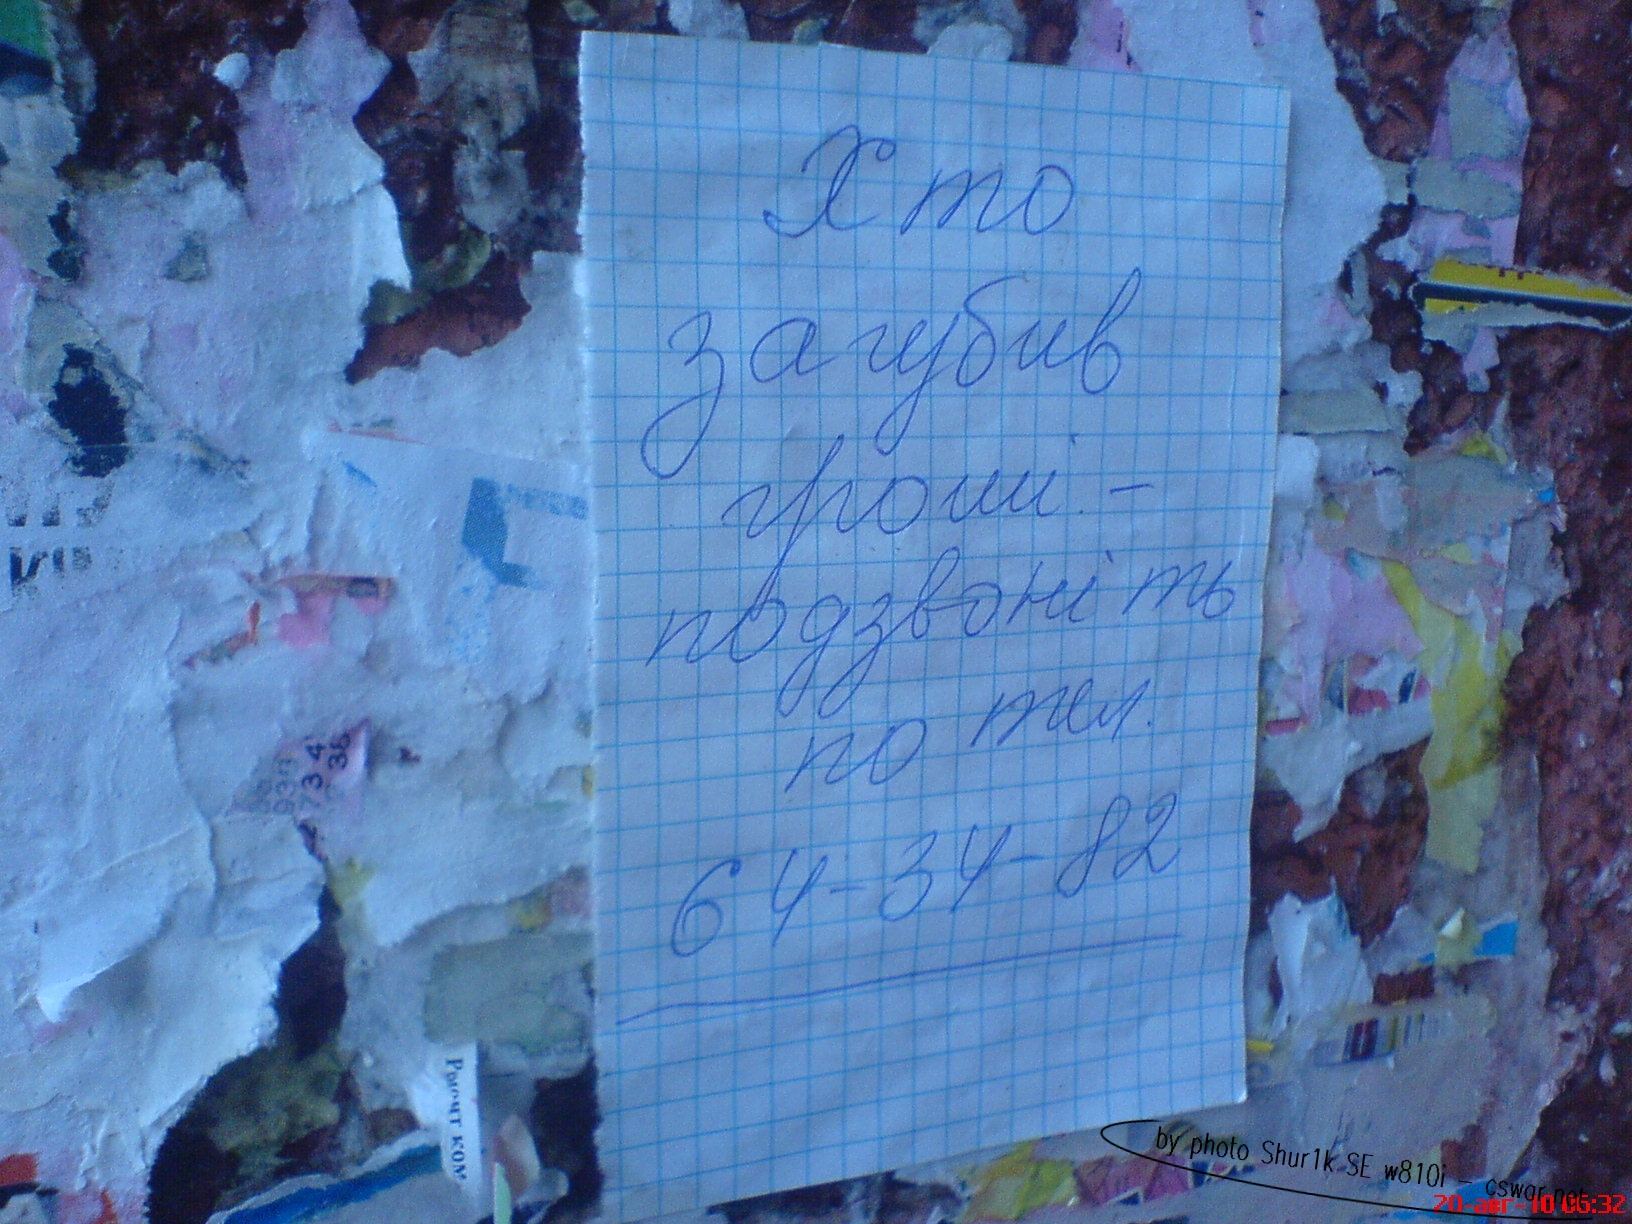 Хто
загубив
гроші -
подзвоніть
по тел.
64-34-82
73 4
38
Ремонт ком
by photo Shur1k SE w810i - cswar.net
20-авг-10 06:32